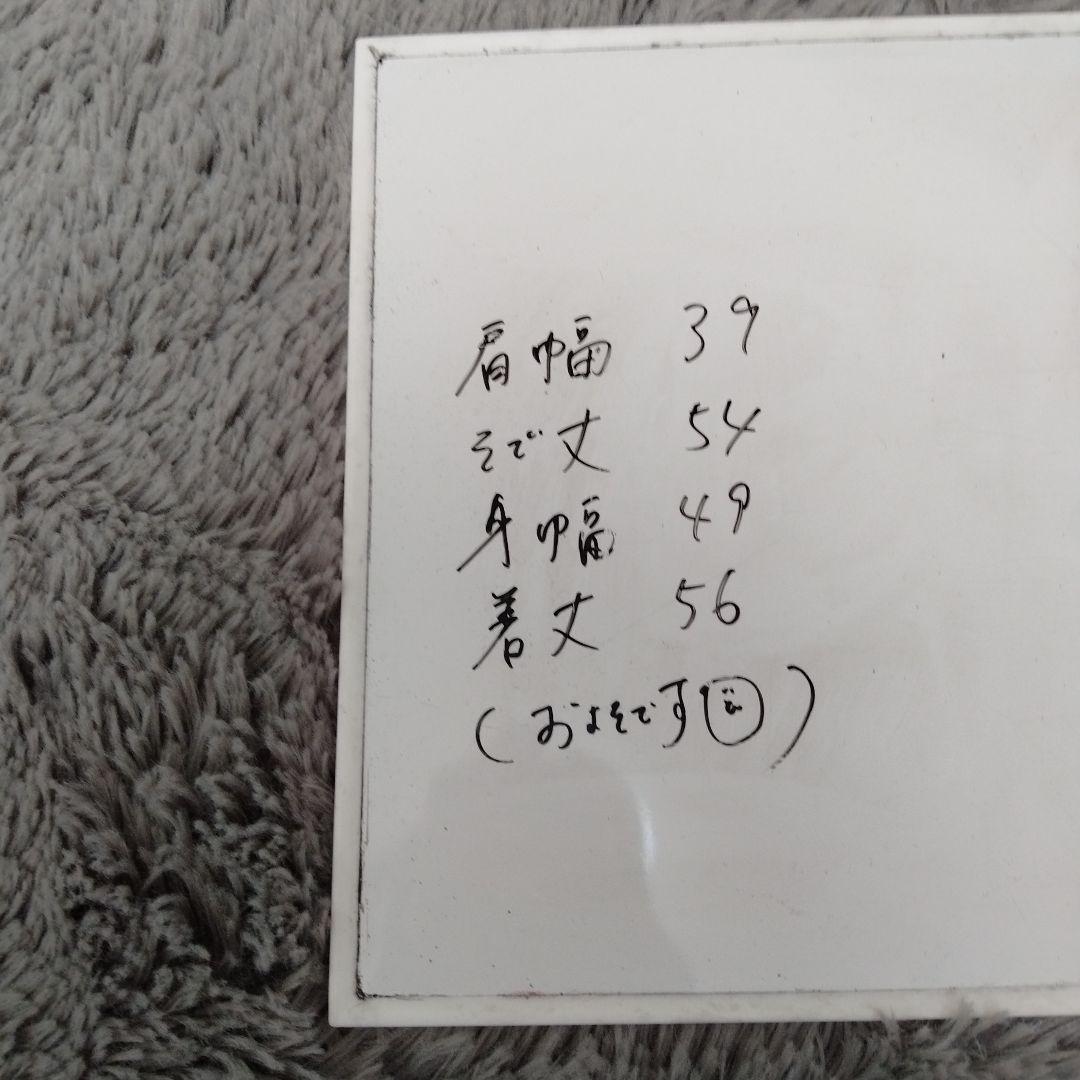 肩幅 39
そで丈 54
身幅 49
着丈 56
(およそです)